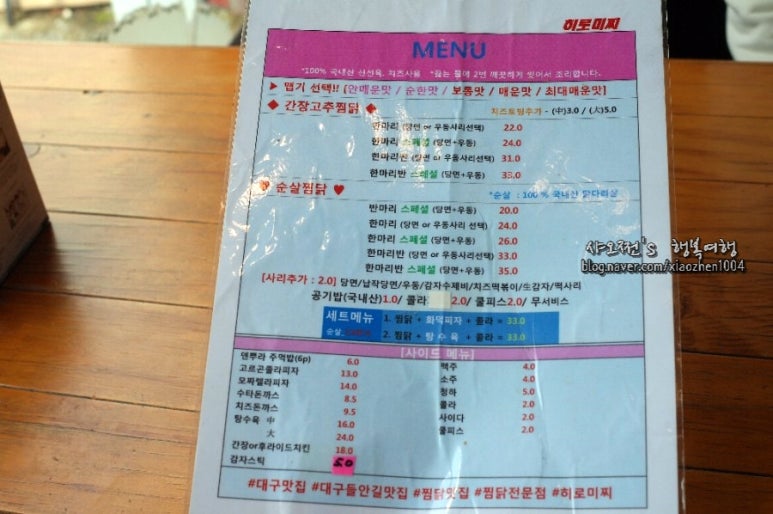 히로미찌
MENU
*100% 국내산 신선육, 치즈사용 *끓는 물에 2번 깨끗하게 씻어서 조리합니다.
▶ 맵기 선택!! [안매운맛 / 순한맛 / 보통맛 / 매운맛 / 최대매운맛]
◆ 간장고추찜닭 ◆ 치즈토핑추가 - (中)3.0 / (大)5.0
한마리 (당면 or 우동사리선택) 22.0
한마리 스페셜 (당면+우동) 24.0
한마리반 (당면 or 우동사리선택) 31.0
한마리반 스페셜 (당면+우동) 33.0
♥ 순살찜닭 ♥ *순살 : 100 % 국내산 닭다리살
반마리 스페셜 (당면+우동) 20.0
한마리 (당면 or 우동사리 선택) 24.0
한마리 스페셜 (당면+우동) 26.0
한마리반 (당면 or 우동사리선택) 33.0
한마리반 스페셜 (당면+우동) 35.0
[사리추가 : 2.0] 당면/납작당면/우동/감자수제비/치즈떡볶이/생감자/떡사리
공기밥(국내산)1.0/ 콜라 2.0/ 쿨피스2.0/ 무서비스
세트메뉴 1. 찜닭 + 화덕피자 + 콜라 = 33.0
순살 2. 찜닭 + 탕수육 + 콜라 = 33.0
[사이드 메뉴]
덴뿌라 주먹밥(6p) 6.0
고르곤졸라피자 13.0
모짜렐라피자 14.0
수타돈까스 8.5
치즈돈까스 9.5
탕수육 中 16.0
大 24.0
간장or후라이드치킨 18.0
감자스틱 5.0
맥주 4.0
소주 4.0
청하 5.0
콜라 2.0
사이다 2.0
쿨피스 2.0
#대구맛집 #대구들안길맛집 #찜닭맛집 #찜닭전문점 #히로미찌
샤오쩐's 행복여행
blog.naver.com/xiaozhen1004